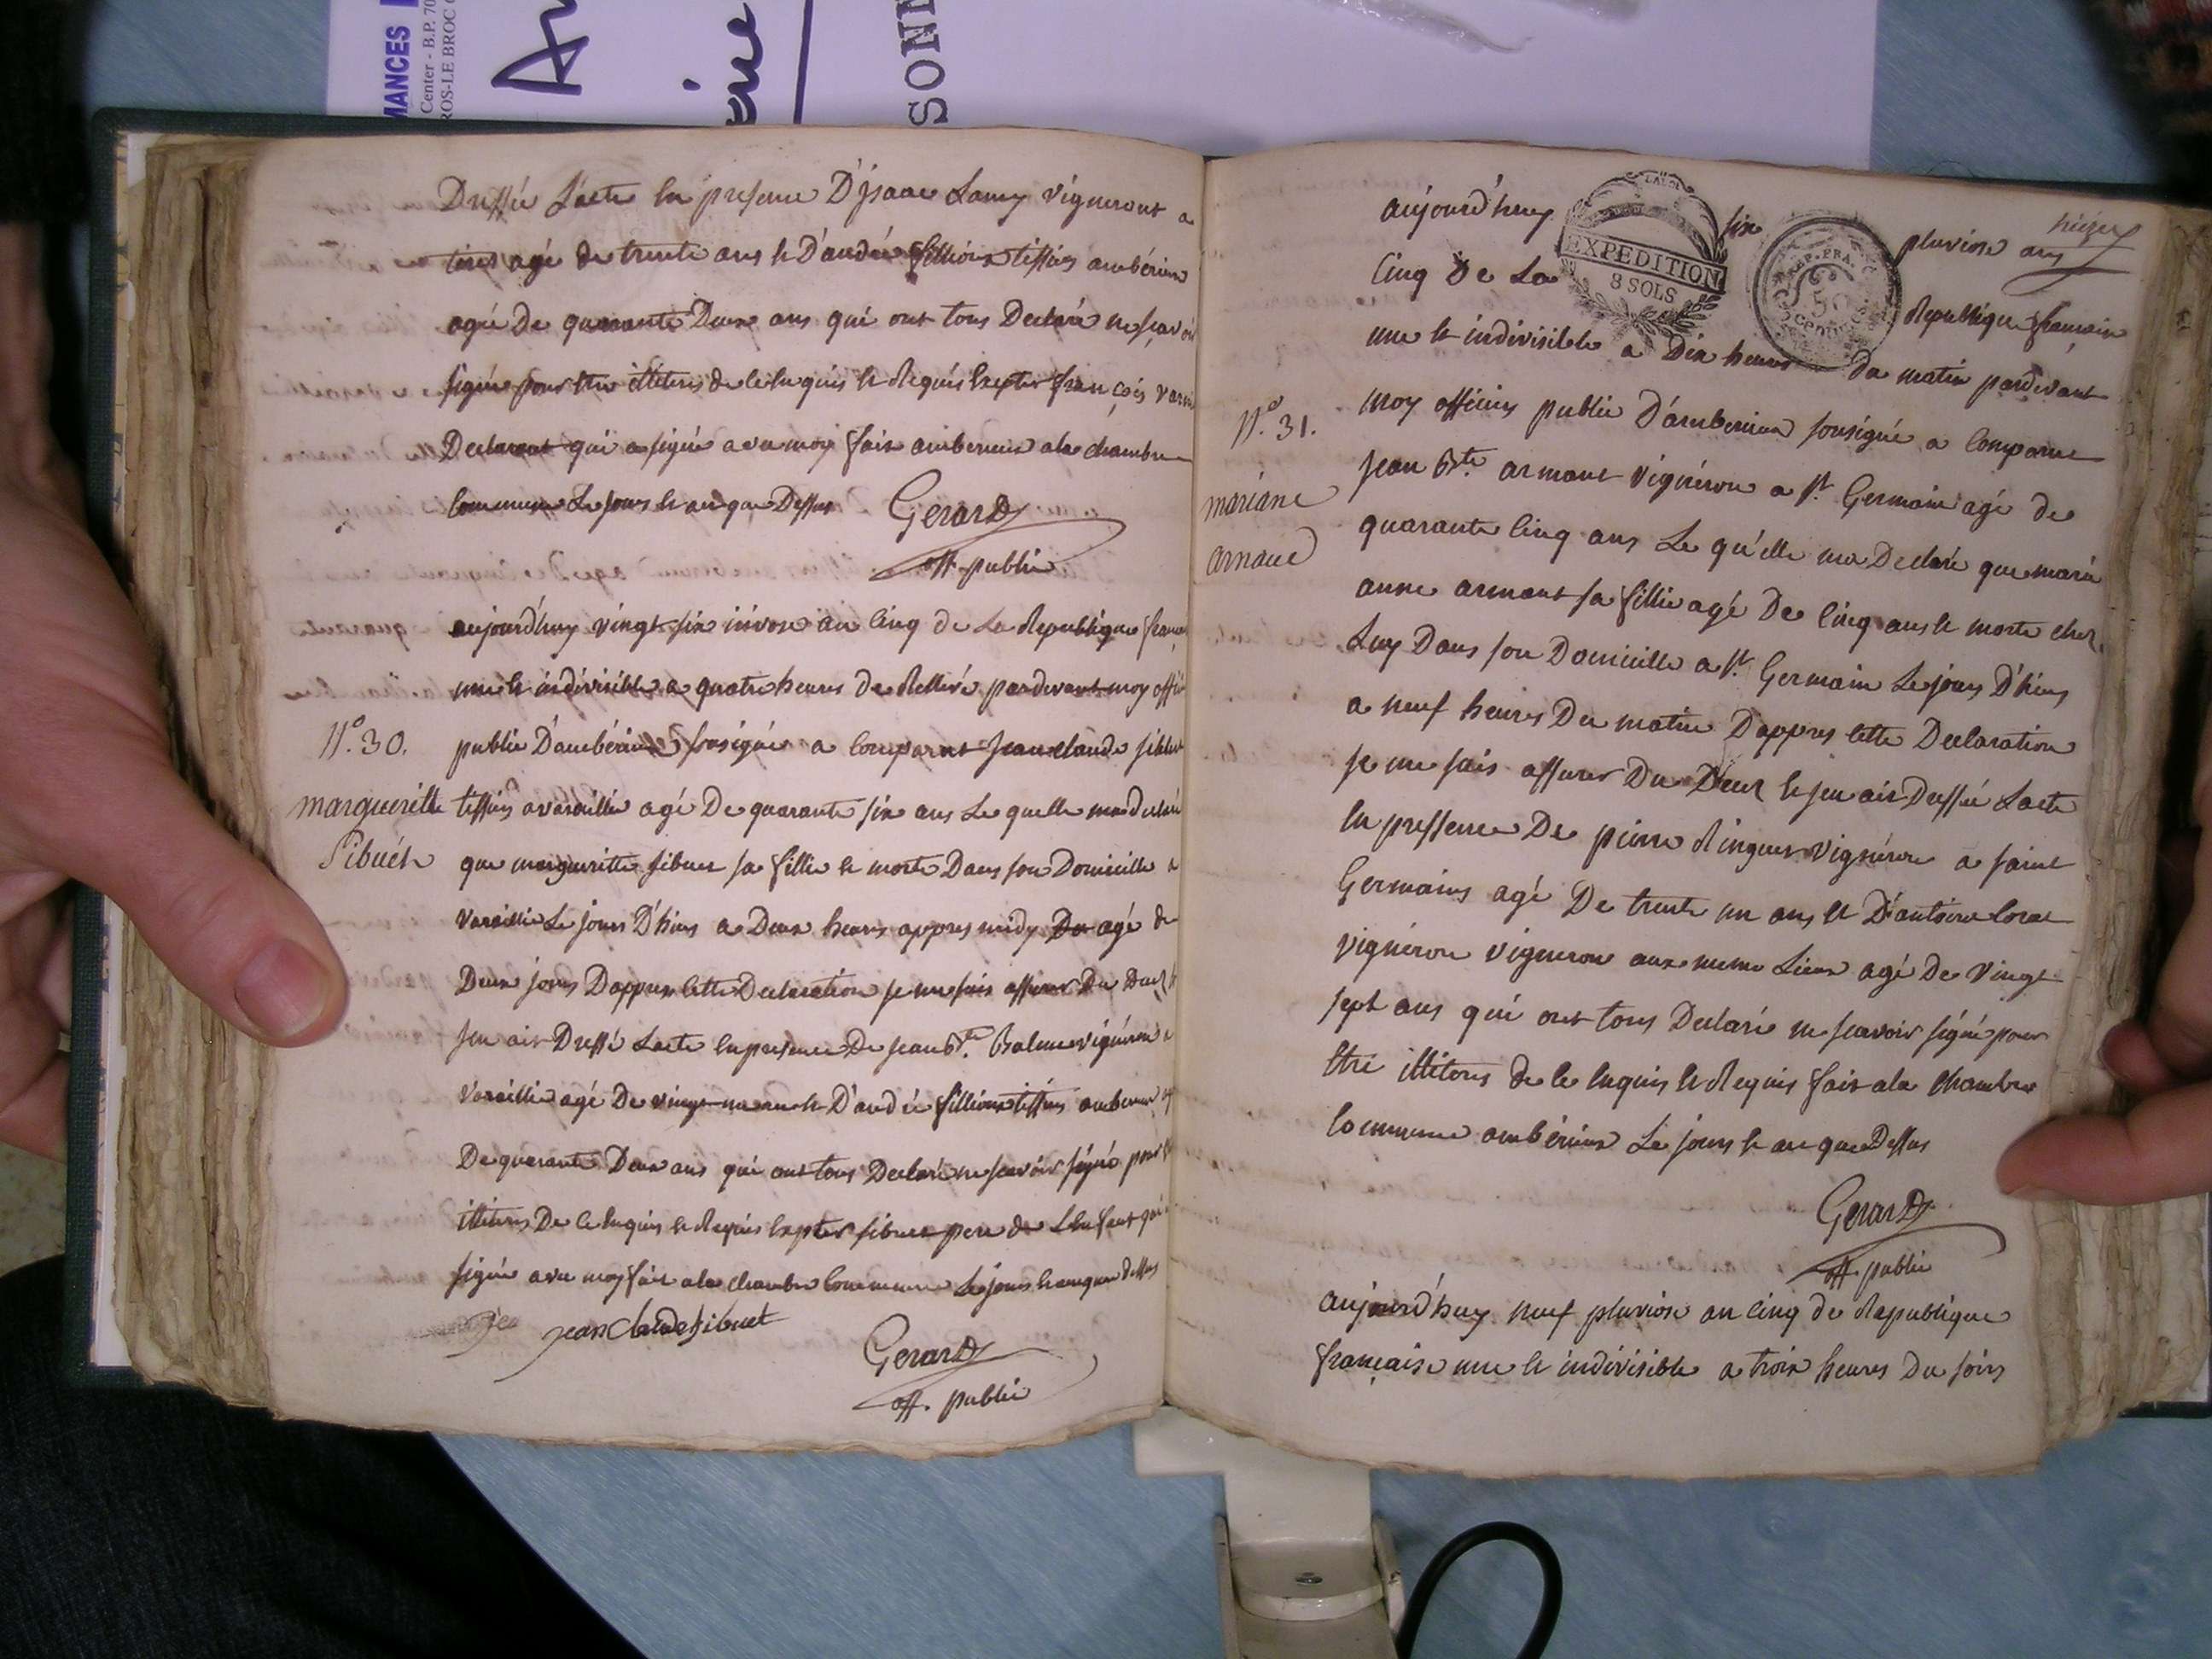 MANCES
Center - B.P. 70
ROS-LE BROC C
SONN
Dressée L'acte En presence D'jsaac Lamy vigneront a
agé de trente ans et D'andée fillioux tissier ambérieux
agée De quarante Deux ans qui ont tous Declaré ne scavoir
signée pour être illiteres de ce enquis et Requis Exepter françois
Declarant qui a signée avec moy fait amberieux a la chambre
Commune Le jours et an que Dessus Gerard
off. public
aujourd'huy vingt six nivose an Cinq de La Republique francai
une et indivisible a quatre heures de Rellevé pardevant moy offici
N.o 30. public D'ambérieux sousigné a Comparut jean claude sibuet
marguerille tissier a vareillie agé De quarante six ans Le quelle ma declaré
Sibuét que marguerille sibuet sa fillie et morte Dans son Domicille a
vareillie Le jours D'hiers a Deux heures appres midy Du agé de
Deux jours Dappres cette Declaration je me suis assurer Du Decz et
jen ait Dressé Lacte En presence De jean B.te Balme vignéron a
vareillie agé De vingt un ans et D'andée fillioux tissier amberieux agé
De quarante Deux ans qui ont tous Declaré ne scavoir signé pour etre
illiteres De ce Enquis et Requis Exepter sibuet pere de Lenfent qui a
signée avec moy fait a la chambre Commune Le jours et an que dessus
jean Claude sibuet
Gerard
off. public
aujourd'huy six pluviose an
EXPEDITION
8 SOLS
Cinq De La Republique française
une et indivisible a Dix heures Du matin pardevant
N.o 31. moy officier public D'amberieux sousigné a Comparut
mariane jean B.te armant vignéron a st. Germain agé de
arnaud quarante Cinq ans Le qu'elle ma Declaré que marie
anne armant sa fillie agé De Cinq ans et morte chez
Luy Dans son Domicille a st. Germain Le jours D'hiers
a neuf heures Du matin Dappres cette Declaration
je me suis assurer Du Decez et jen ait Dressée Lacte
En pressence De pierre Ringuet vignéron a saint
Germains agé De trente un ans et D'antoine
vignéron vigneron aux meme Lieux agé De vingt
sept ans qui ont tous Declaré ne scavoir signé pour
Etre illiteres de ce Enquis et Requis fait a la chambre
Commune ambérieux Le jours et an que Dessus
Gerard
off. public
aujourd'huy neuf pluviose an Cinq de Republique
française une et indivisible a trois heures Du soirs